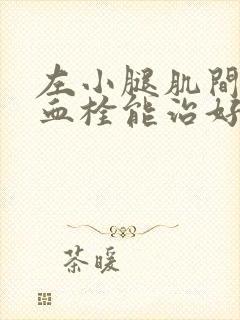 左小腿肌間
血栓能治好
茶暖